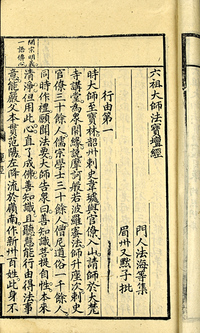 六祖大師法寶壇經
門人法海等集
眉州點子批
行由第一
時大師至寶林韶州刺史韋璩與官僚入山請師於大梵
寺講堂為衆開緣說摩訶般若波羅蜜法師升座次刺史
官僚三十餘人儒宗學士三十餘人僧尼道俗一千餘人
同時作禮願聞法要大師告衆曰善知識菩提自性本來
清淨但用此心直了成佛善知識且聽惠能行由得法事
意能嚴父本貫范陽左降流於嶺南作新州百姓此身不
開宗明義
一語傳